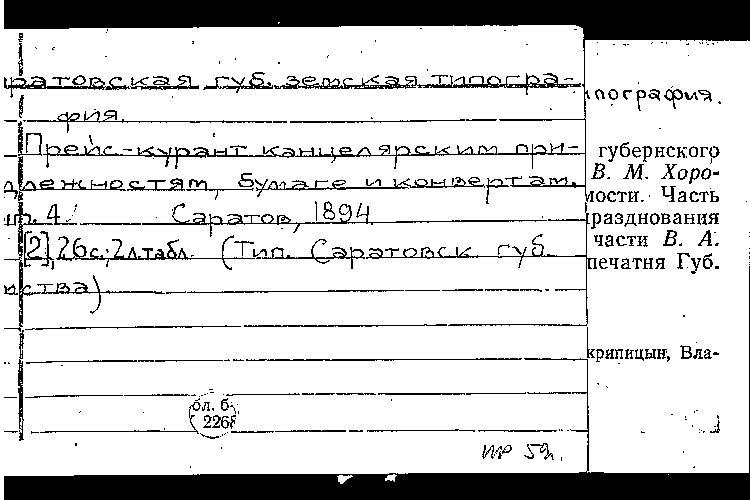 ратовская губ. земская типогра-
фия.
Прейс-курант канцелярским при-
длежностям, бумаге и конвертам.
4.
Саратов, 1894
[2], 26 с.; 2 л. табл. (Тип. Саратовск. губ.
ства)
бл. б-
2268
пография.
губернского
В. М. Хоро-
мости. Часть
празднования
части В. А.
печатня Губ.
крипицын, Вла-